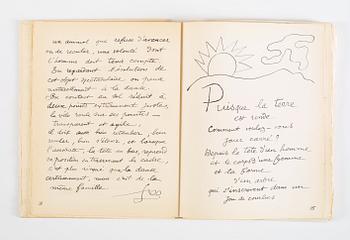 un animal que refuse d'avancer
ou de reculer, une volonté dont
l'homme doit tenir compte.
En regardant l'évolution de
cet objet spectaculaire on pense
naturellement à la danse.
En contact au sol réduit à
deux points extrêmement justes,
le vélo roule sur des pointes —
transparent et agile,
il doit aussi bien retomber, bien
rouler, bien s'élever, et lorsque
l'acrobate, la tête en bas, reprend
sa position en traversant le cadre,
c'est plus risqué que la danse
certainement, mais c'est de la
même famille.
Puisque la terre
est ronde
Comment voulez-vous
jouer carré ?
Depuis la tête d'un homme
et le corps d'une femme
et la forme
d'un arbre
qui s'inscrivent dans un
jeu de courbes